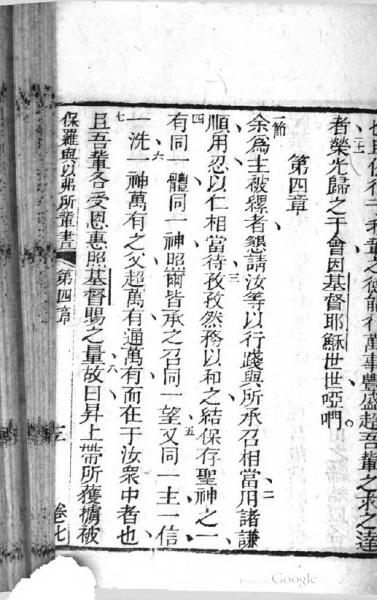 者榮光歸之于會因基督耶穌世世啞們。
第四章
一節 余為主被繹者懇請汝等以行踐與所承召相當用諸謙
順用忍以仁相當待孜孜然務以和之結保存聖神之一
有同一體同一神照爾皆承之召同一望又同一主一信
一洗一神萬有之父超萬有通萬有而在于汝眾中者也
且吾輩各受恩惠照基督賜之量故曰昇上帶所獲擄被
保羅與以弗所輩書 第四章 卷七
Google